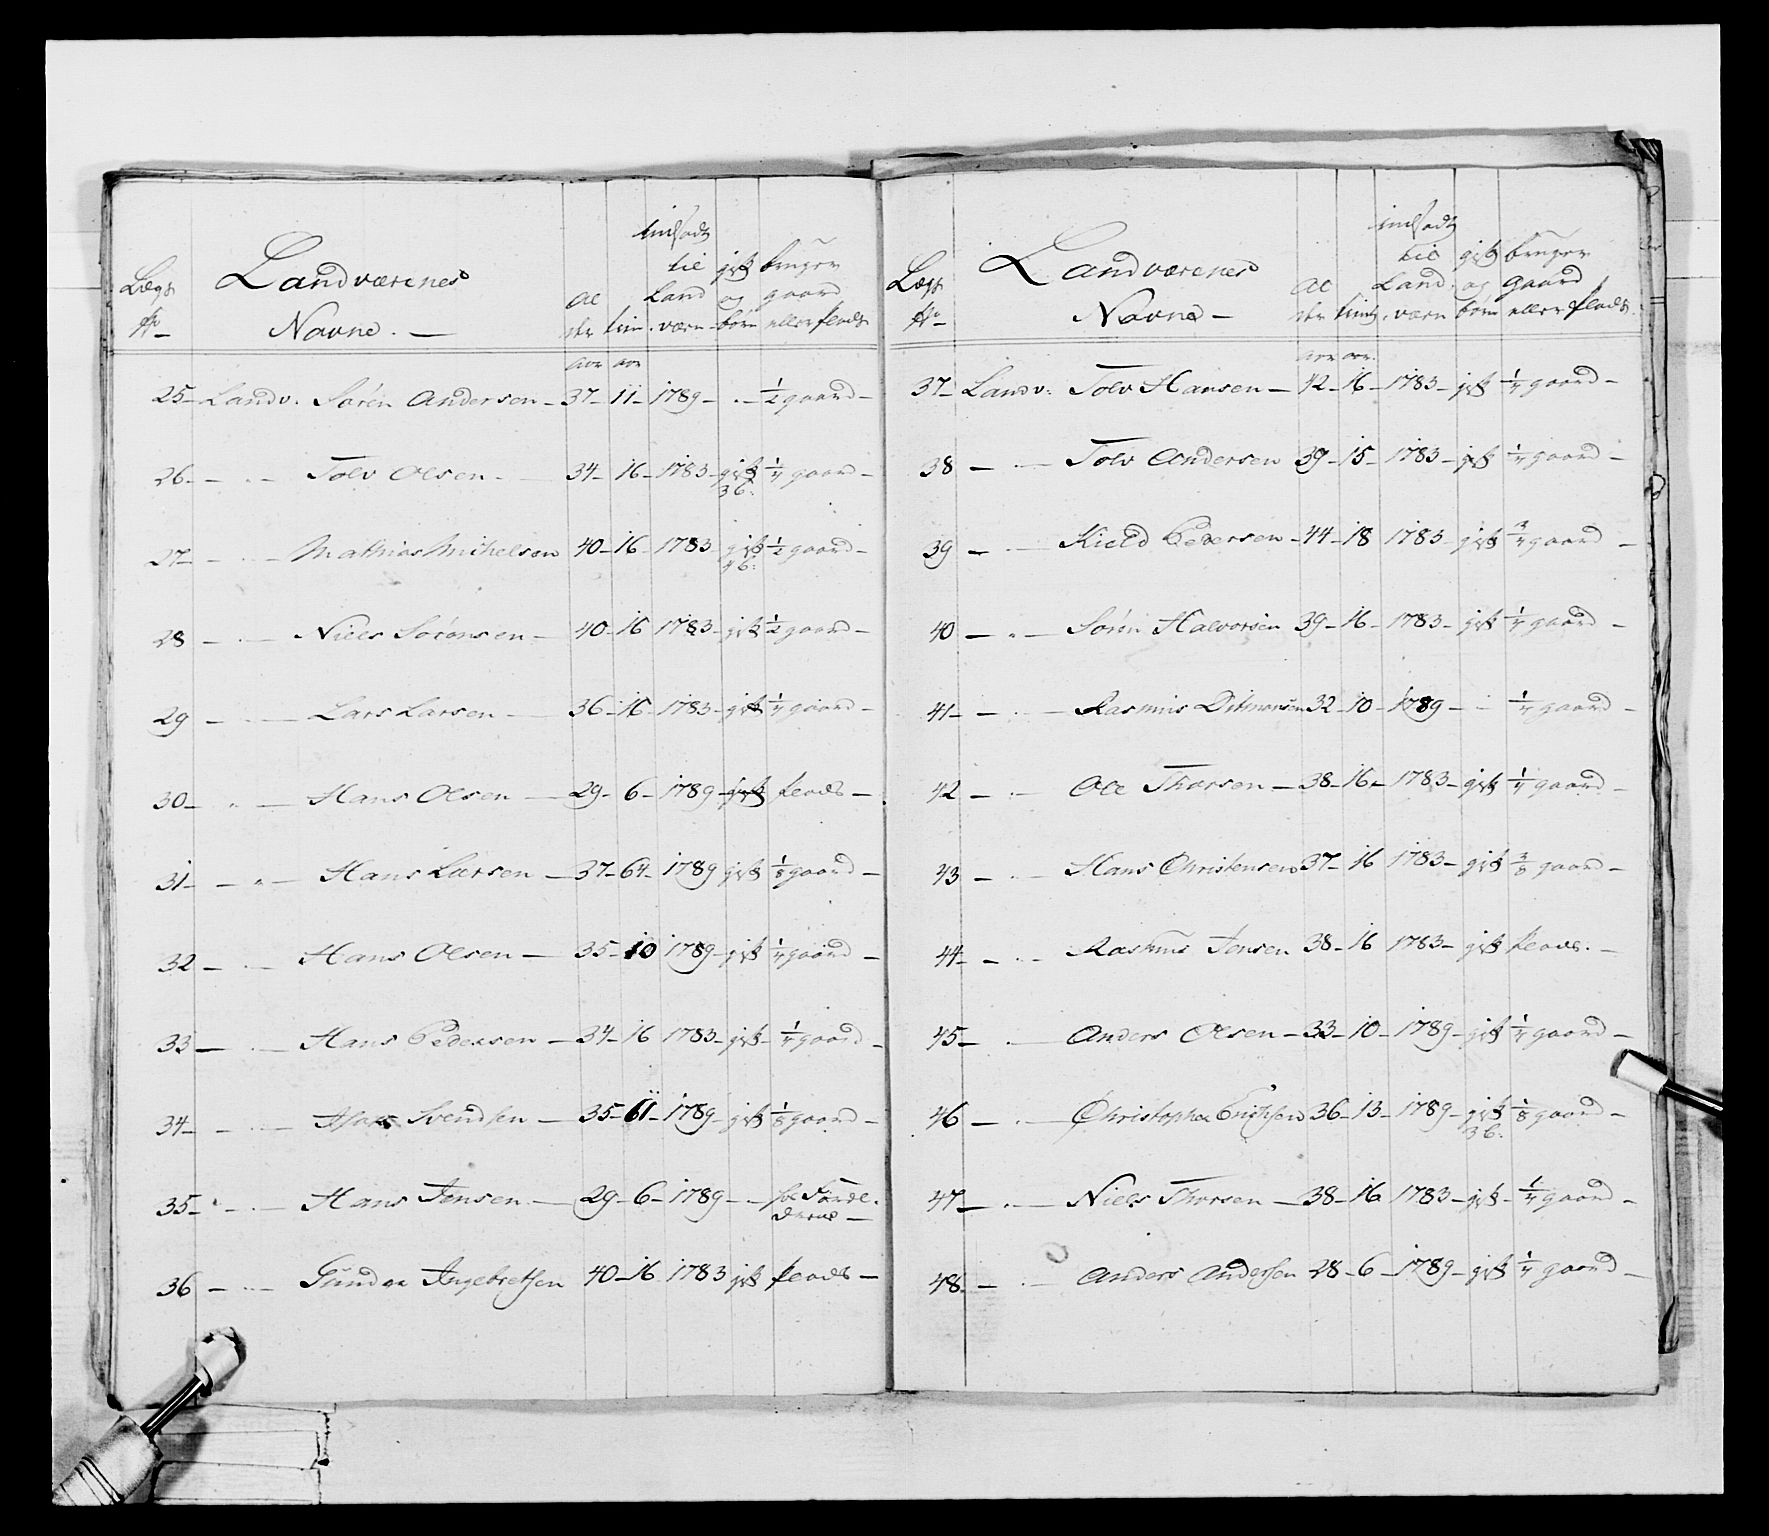 Lægs No Landværenes Navne. al der tien. indsadt til Land værn gift og børn bruger gaard eller plads
aar aar
25 Landv: Søren Andersen 37 11 1789 - 1/2 gaard
26 Tolv Olsen 34 16 1783 gift 3 b: 1/4 gaard
27 Mathias Mihelsen 40 16 1783 gift 4 b: 1/2 gaard
28 Niels Sørensen 40 16 1783 gift 1/2 gaard
29 Lars Larsen 36 16 1783 gift 1/4 gaard
30 Hans Olsen 29 6 1789 gift plads
31 Hans Larsen 37 1789 gift 1/8 gaard
32 Hans Olsen 35 10 1789 gift 1/4 gaard
33 Hans Pedersen 34 16 1783 gift 1/4 gaard
34 Svendsen 35 11 1789 gift 1/8 gaard
35 Hans Jensen 29 6 1789 -
36 Gunder Ingebretsen 40 16 1783 gift plads
Lægs No Landværenes Navne al der tient indsadt til Land værn gift og børn bruger gaard eller plads
aar aar.
37 Landv: Tolv Hansen 42 16 1783 gift 1/4 gaard
38 Tolv Andersen 39 15 1783 gift 1/4 gaard
39 Kield Pedersen 44 18 1783 gift 3/4 gaard
40 Søren Halvorsen 39 16 1783 gift 1/4 gaard
41 Rasmus Ditmansen 32 10 1789 - 1/4 gaard
42 Ole Thorsen 38 16 1783 gift 1/4 gaard
43 Hans Christensen 37 16 1783 gift 3/8 gaard
44 Rasmus Jensen 38 16 1783 gift plads.
45 Anders Olsen 33 10 1789 gift 1/4 gaard
46 Christopher Erichsen 36 13 1789 gift 3 b. 1/8 gaard
47 Niels Thorsen 38 16 1783 gift 1/4 gaard
48 Anders Andersen 28 6 1789 gift 1/4 gaard